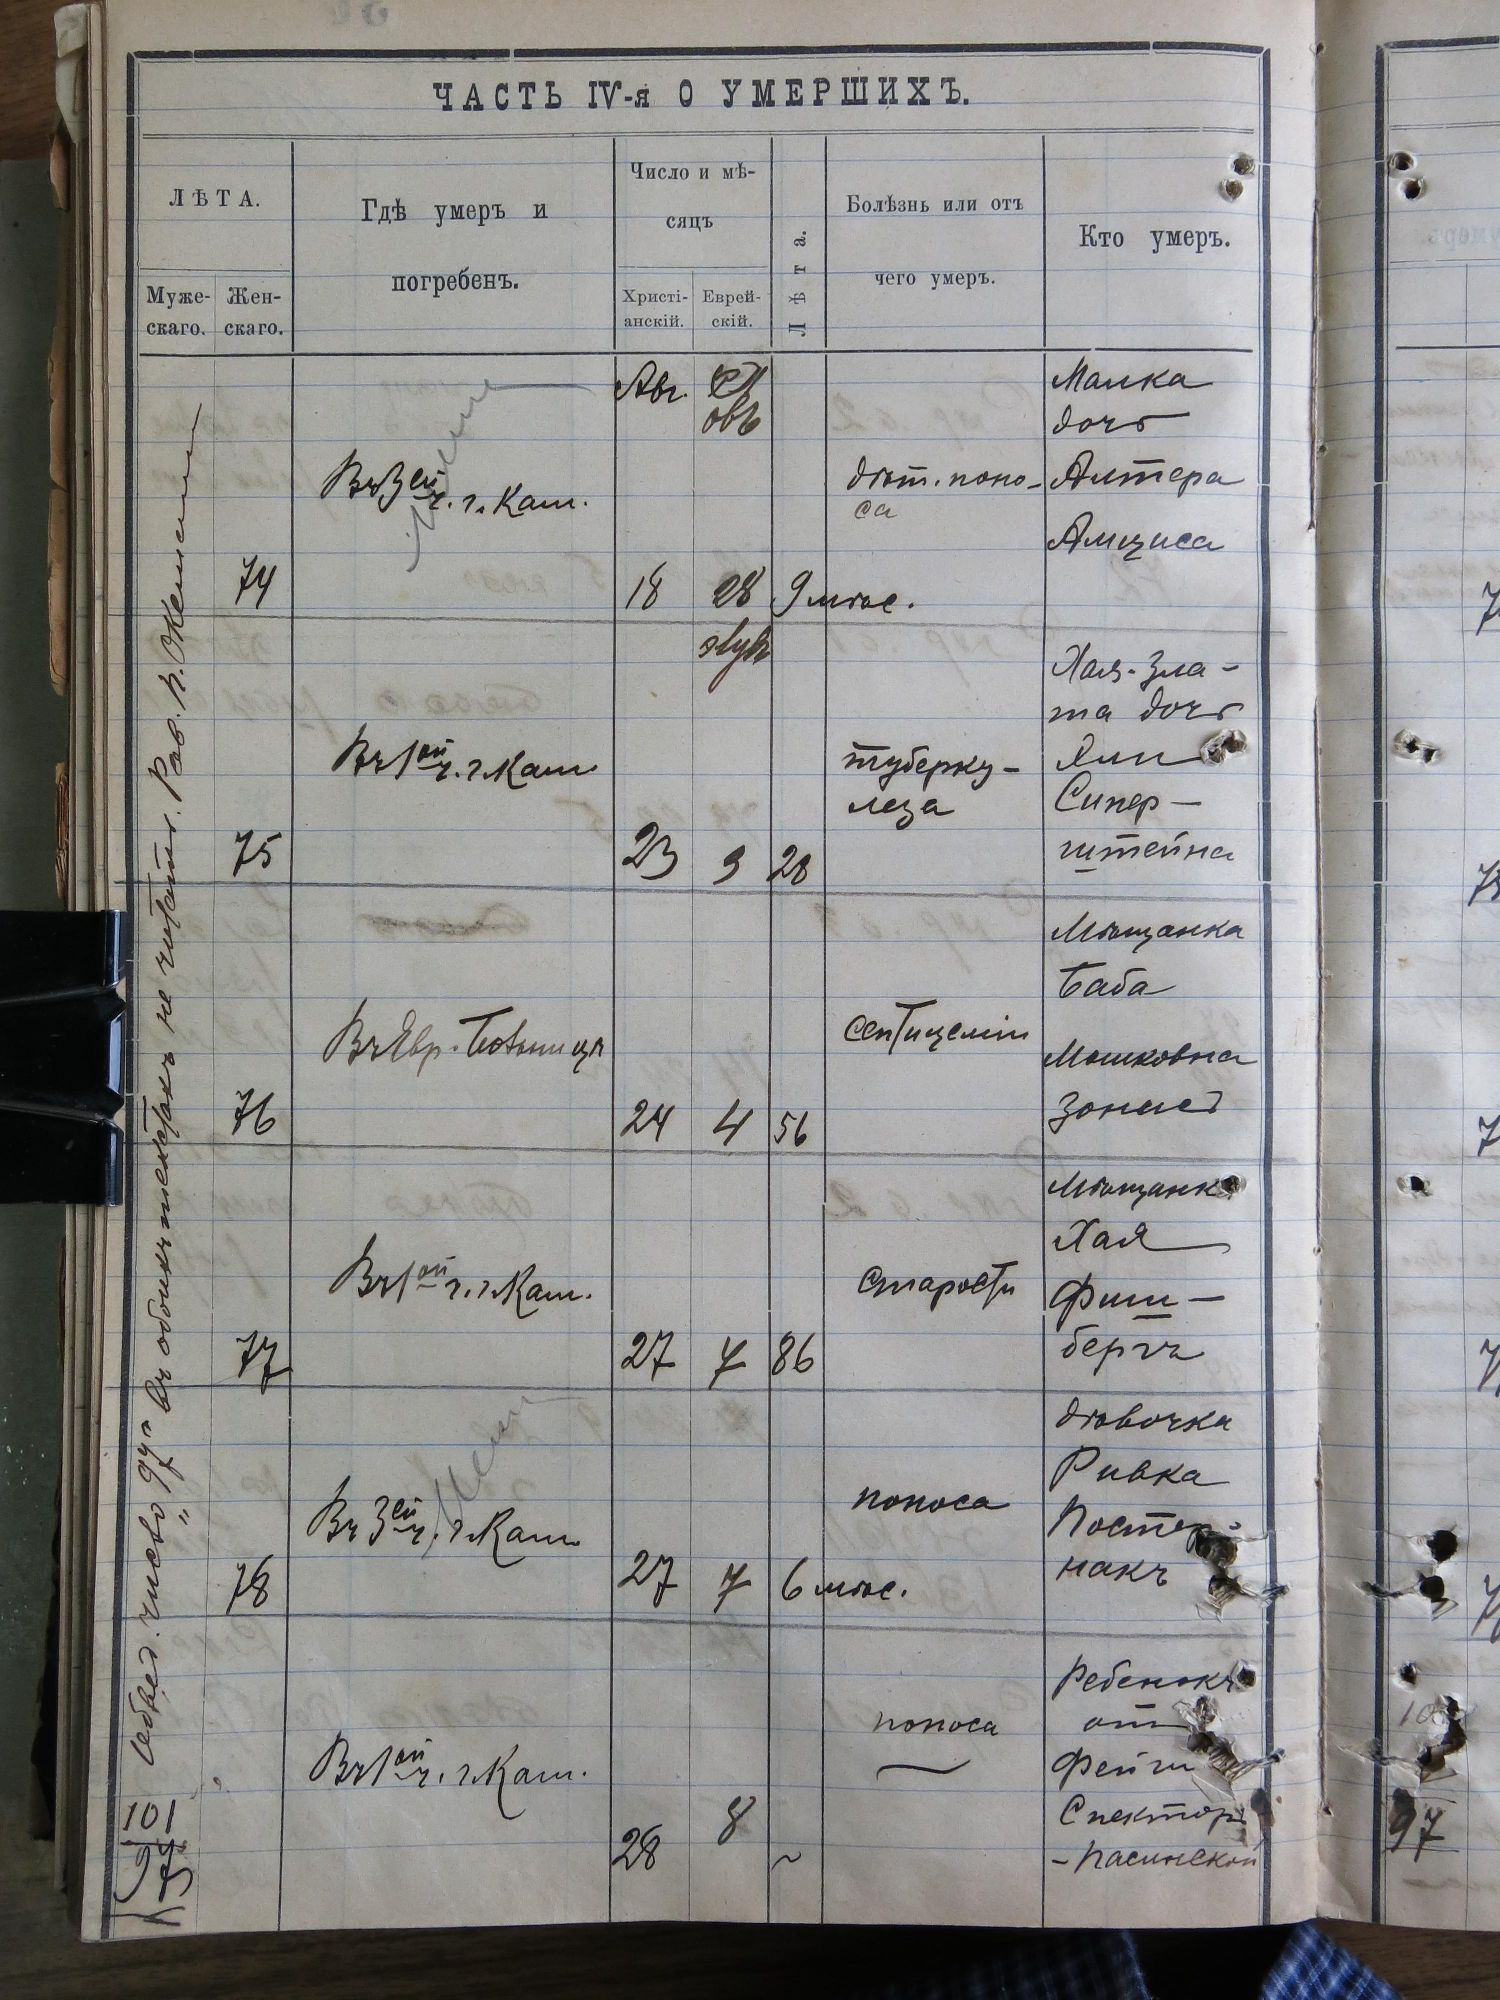 ЧАСТЬ IV-я О УМЕРШИХЪ.
ЛѢТА.
Муже-
скаго.
Жен-
скаго.
Гдѣ умеръ и
погребенъ.
Число и мѣ-
сяцъ
Христі-
анскій.
Еврей-
скій.
Лѣта.
Болѣзнь или отъ
чего умеръ.
Кто умеръ.
Авг.
овъ
74
Въ 3ей ч. г. Каш.
18
28
9 мѣс.
дѣт. поно-
са
Малка
дочь
Алтера
Амциса
75
Въ 1ой ч. г. Каш
элулъ
23
3
28
туберку-
леза
Хая-Зла-
та дочь
Сипер-
штейна
76
Въ Евр. Больницѣ
24
4
56
септицеміи
Мѣщанка
Баба
Мошковна
77
Въ 1ой ч. г. Каш.
27
7
86
старости
Мѣщанка
Хая
Фиш-
бергъ
78
Въ 3ей ч. г. Каш
27
7
6 мѣс.
поноса
дѣвочка
Ривка
Постер-
накъ
Въ 1ой ч. г. Каш.
28
8
~
поноса
Ребенокъ
от
Фейги
Спекторъ
число „97“ въ обоихъ мѣстахъ не читать. Рав.
101
97